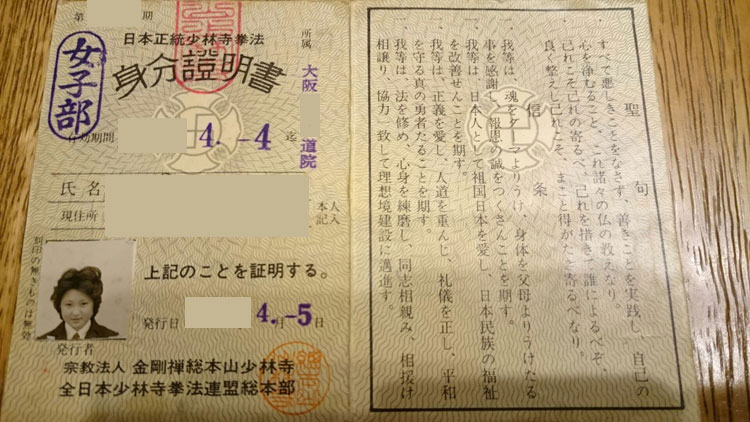 第 期
日本正統少林寺拳法
身分證明書
女子部
所属 大阪 道院
有効期間 4.-4 迄
氏名
現住所
本人記入
割印の無きものは無効
上記のことを証明する。
発行日 4.月-5日
発行者
宗教法人 金剛禅総本山少林寺
全日本少林寺拳法連盟総本部
聖句
すべて悪しきことをなさず、善きことを実践し、自己の
心を浄むること、これ諸々の仏の教えなり。
己れこそ己れの寄るべ、己れを措きて誰によるべぞ、
良く整えし己れこそ、まこと得がたき寄るべなり。
信条
一、我等は、魂をダーマよりうけ、身体を父母よりうけたる
事を感謝し、報恩の誠をつくさんことを期す。
一、我等は、日本人として祖国日本を愛し、日本民族の福祉
を改善せんことを期す。
一、我等は、正義を愛し、人道を重んじ、礼儀を正し、平和
を守る真の勇者たることを期す。
一、我等は、法を修め、心身を練磨し、同志相親み、相援け
相譲り、協力一致して理想境建設に邁進す。